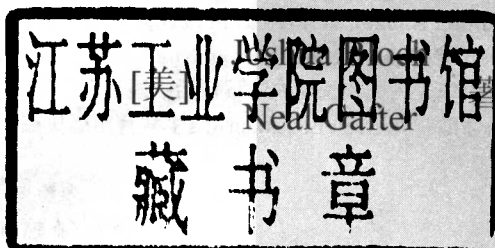 江苏工业学院图书馆
[美] Joshua Bloch 著
Neal Gafter
藏书章